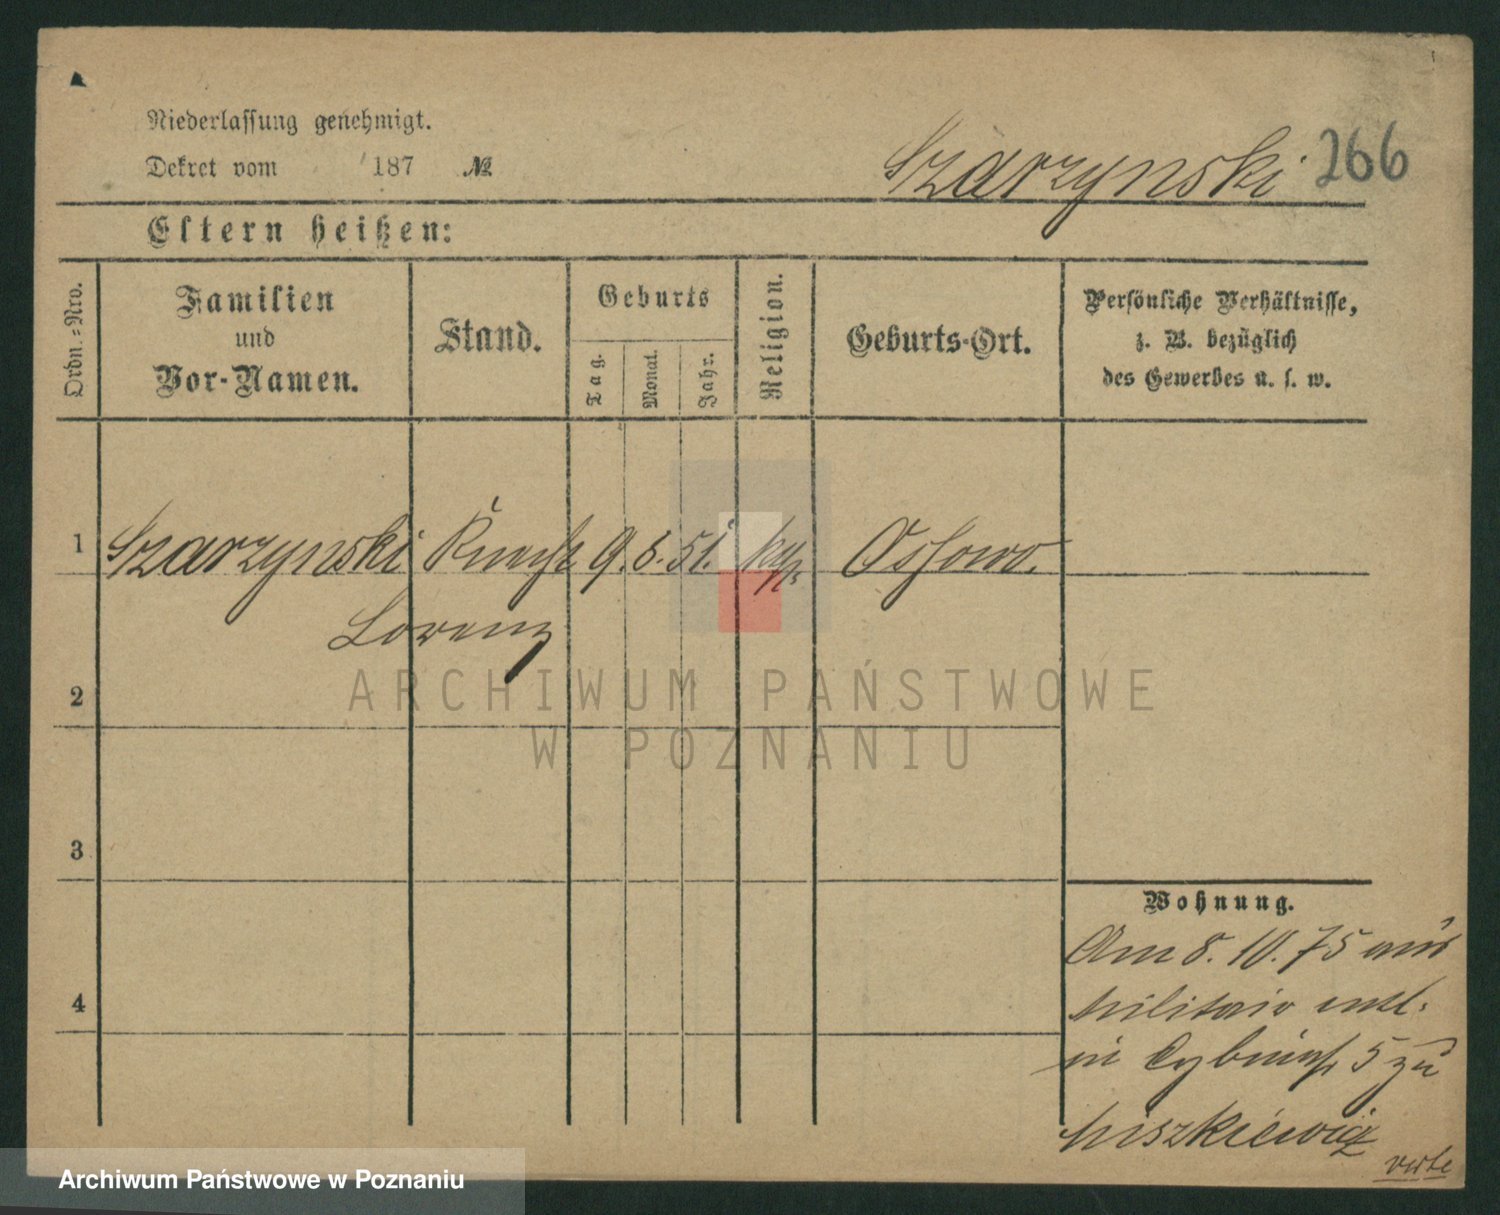 Niederlassung genehmigt.
Dekret vom 187 №
Szarzynski 266
Eltern heißen:
Ordn.-Nro.
Familien
und
Vor-Namen.
Stand.
Geburts
Tag.
Monat.
Jahr.
Religion.
Geburts-Ort.
Persönliche Verhältnisse,
z. B. bezüglich
des Gewerbes u. s. w.
1 Szarzynski Knecht 9. 8. 51. kath. Ossowo.
Lorenz
2
3
4
Wohnung.
Am 8. 10. 75 aus
Militair entl.
in 5 zu
verte
ARCHIWUM PAŃSTWOWE
W POZNANIU
Archiwum Państwowe w Poznaniu